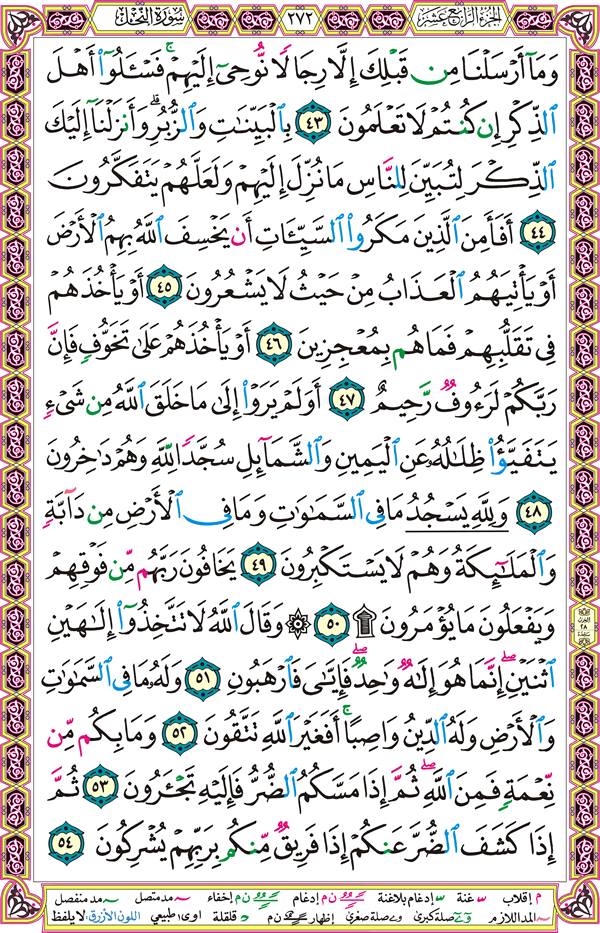 الجزء الرابع عشر ٢٧٢ سورة النحل
وَمَآ أَرْسَلْنَا مِن قَبْلِكَ إِلَّا رِجَالًا نُّوحِىٓ إِلَيْهِمْ ۚ فَسْـَٔلُوٓا۟ أَهْلَ
ٱلذِّكْرِ إِن كُنتُمْ لَا تَعْلَمُونَ ٤٣ بِٱلْبَيِّنَـٰتِ وَٱلزُّبُرِ ۗ وَأَنزَلْنَآ إِلَيْكَ
ٱلذِّكْرَ لِتُبَيِّنَ لِلنَّاسِ مَا نُزِّلَ إِلَيْهِمْ وَلَعَلَّهُمْ يَتَفَكَّرُونَ
٤٤ أَفَأَمِنَ ٱلَّذِينَ مَكَرُوا۟ ٱلسَّيِّـَٔاتِ أَن يَخْسِفَ ٱللَّهُ بِهِمُ ٱلْأَرْضَ
أَوْ يَأْتِيَهُمُ ٱلْعَذَابُ مِنْ حَيْثُ لَا يَشْعُرُونَ ٤٥ أَوْ يَأْخُذَهُمْ
فِى تَقَلُّبِهِمْ فَمَا هُم بِمُعْجِزِينَ ٤٦ أَوْ يَأْخُذَهُمْ عَلَىٰ تَخَوُّفٍ فَإِنَّ
رَبَّكُمْ لَرَءُوفٌ رَّحِيمٌ ٤٧ أَوَلَمْ يَرَوْا۟ إِلَىٰ مَا خَلَقَ ٱللَّهُ مِن شَىْءٍ
يَتَفَيَّؤُا۟ ظِلَـٰلُهُۥ عَنِ ٱلْيَمِينِ وَٱلشَّمَآئِلِ سُجَّدًا لِّلَّهِ وَهُمْ دَٰخِرُونَ
٤٨ وَلِلَّهِ يَسْجُدُ مَا فِى ٱلسَّمَـٰوَٰتِ وَمَا فِى ٱلْأَرْضِ مِن دَآبَّةٍ
وَٱلْمَلَـٰٓئِكَةُ وَهُمْ لَا يَسْتَكْبِرُونَ ٤٩ يَخَافُونَ رَبَّهُم مِّن فَوْقِهِمْ
وَيَفْعَلُونَ مَا يُؤْمَرُونَ ۩ ٥٠ ۞ وَقَالَ ٱللَّهُ لَا تَتَّخِذُوٓا۟ إِلَـٰهَيْنِ
ٱثْنَيْنِ ۖ إِنَّمَا هُوَ إِلَـٰهٌ وَٰحِدٌ ۖ فَإِيَّـٰىَ فَٱرْهَبُونِ ٥١ وَلَهُۥ مَا فِى ٱلسَّمَـٰوَٰتِ
وَٱلْأَرْضِ وَلَهُ ٱلدِّينُ وَاصِبًا ۚ أَفَغَيْرَ ٱللَّهِ تَتَّقُونَ ٥٢ وَمَا بِكُم مِّن
نِّعْمَةٍ فَمِنَ ٱللَّهِ ۖ ثُمَّ إِذَا مَسَّكُمُ ٱلضُّرُّ فَإِلَيْهِ تَجْـَٔرُونَ ٥٣ ثُمَّ
إِذَا كَشَفَ ٱلضُّرَّ عَنكُمْ إِذَا فَرِيقٌ مِّنكُم بِرَبِّهِمْ يُشْرِكُونَ ٥٤
م إقلاب غنة إدغام بلاغنة ن م إدغام ن م إخفاء مد متصل مد منفصل
المد اللازم صلة كبرى صلة صغرى إظهار ن م قلقلة اوى طبيعي اللون الأزرق: لا يلفظ